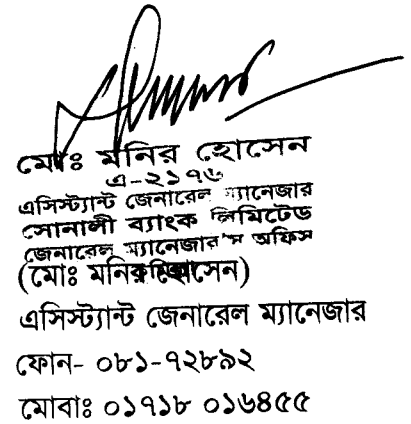 মোঃ মনির হোসেন
এ-২১৭৬
এসিস্ট্যান্ট জেনারেল ম্যানেজার
সোনালী ব্যাংক লিমিটেড
জেনারেল ম্যানেজার'স অফিস
(মোঃ মনির হোসেন)
এসিস্ট্যান্ট জেনারেল ম্যানেজার
ফোন- ০৮১-৭২৮৯২
মোবাঃ ০১৭১৮ ০১৬৪৫৫